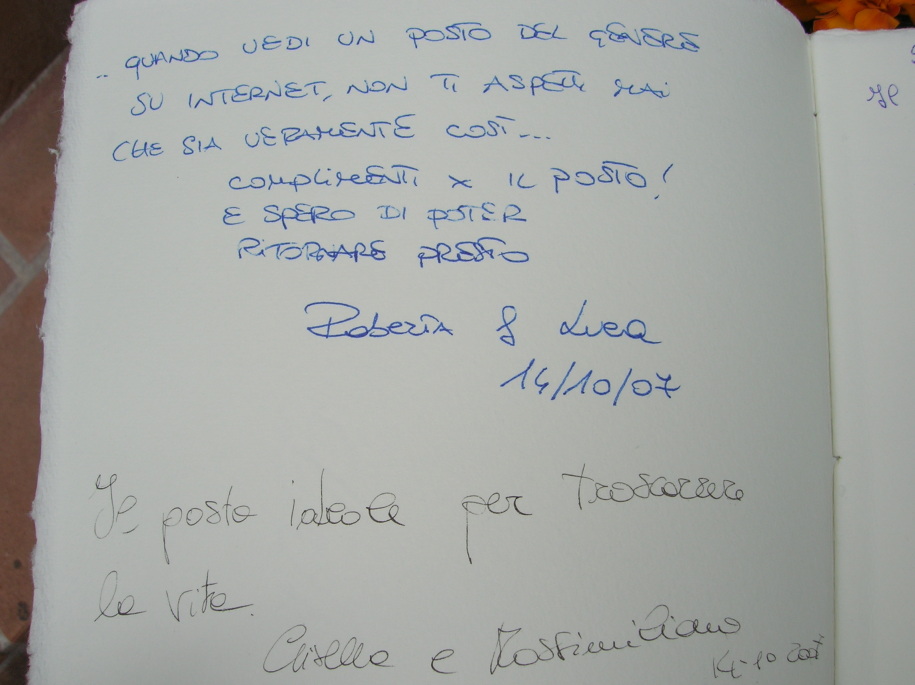 .. QUANDO VEDI UN POSTO DEL GENERE
SU INTERNET, NON TI ASPETTI MAI
CHE SIA VERAMENTE COSÌ...
COMPLIMENTI x IL POSTO!
E SPERO DI POTER
RITORNARE PRESTO
Roberta & Luca
14/10/07
Il posto ideale per trascorrere
la vita.
e Massimiliano
14-10 2007
Il